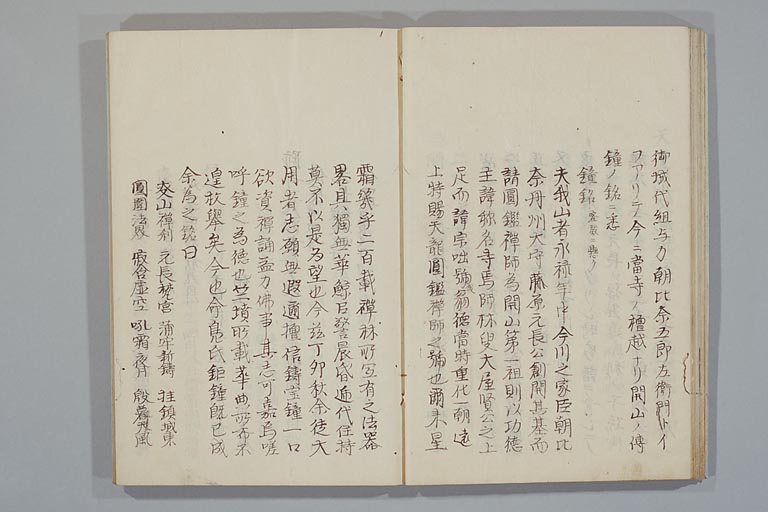 御城代組与力朝比奈五郎左衛門トイ
フアリテ今ニ當寺ノ檀越ナリ開山ノ傳
鐘ノ銘ニ悉
鐘銘
夫我山者永禄年中今川之家臣朝比
奈丹州大守藤原元長公創開其基而
請圓鑑禅師為開山第一祖則以功德
主諱称名寺焉師林叟大屋賢公之上
足而諱宗咄號翁德當時重化一朝遠
上特賜天龍圓鑑禅師之號也爾来星
霜幾乎二百載禅林所写有之法器
畧具獨無華鯨巨警晨昏逓代住持
莫不以是為望也今茲丁卯秋余徒大
用者志願無遐通檀信鋳堂鐘一口
欲資禅誦益力佛事其志可嘉焉嗟
呼鐘之為德也竺墳所載華典所布未
遑枚舉矣今也命鳧氏鉅鐘既已成
余為之銘曰
禅刹 元長梵宮 蒲牢新鋳 柱鎮城東
圓圓法界 寂含虚空 吼霜夜月 殷暮風